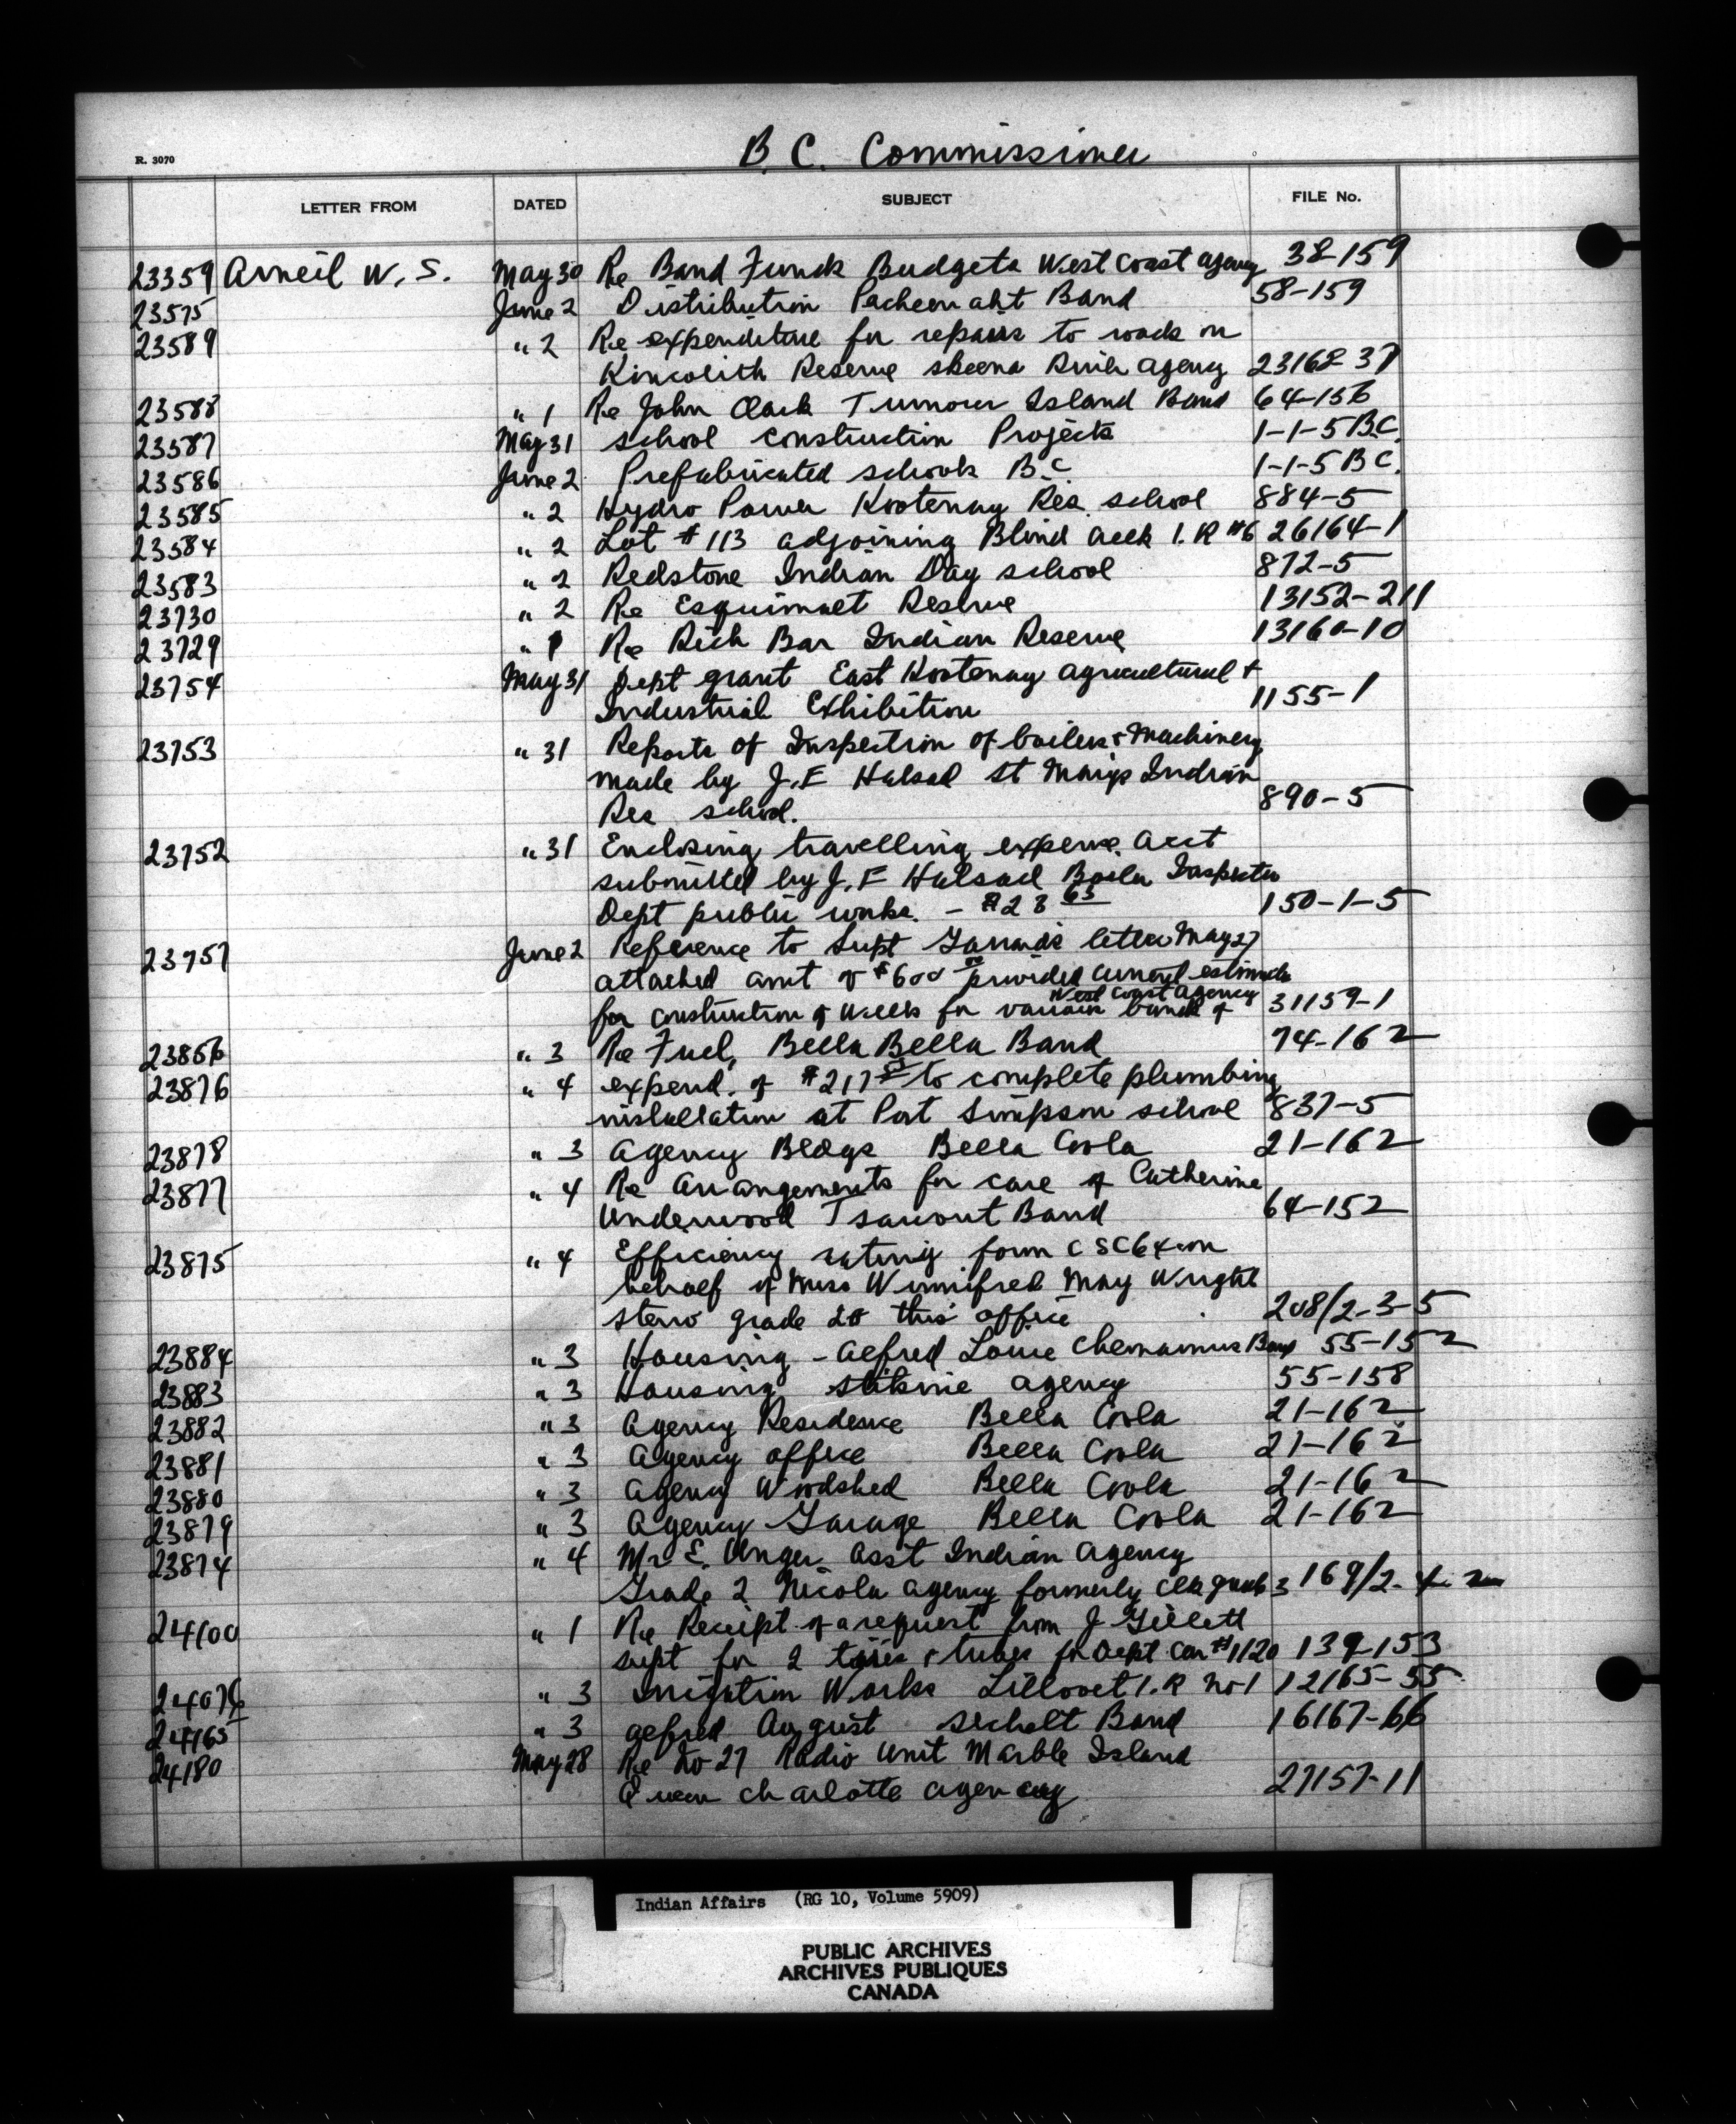 B.C. Commissioner
R. 3070
LETTER FROM DATED SUBJECT FILE No.
23359 Arneil W. S. May 30 Re Band Funds Budgets West Coast agency 38-159
23575 June 2 Distribution Pacheenaht Band 58-159
23589 " 2 Re expenditure for repairs to roads on
Kincolith Reserve Skeena River Agency 23162-37
23588 " 1 Re John Clark Turnour Island Band 64-156
23587 May 31 school construction Projects 1-1-5 B.C.
23586 June 2 Prefabricated schools B.C 1-1-5 B C.
23585 " 2 Hydro Power Kootenay Res. school 884-5
23584 " 2 Lot # 113 adjoining Blind Creek I. R #6 26164-1
23583 " 2 Redstone Indian Day school 872-5
23730 " 2 Re Esquimaet Reserve 13152-211
23729 " 1 Re Rich Bar Indian Reserve 13160-10
23754 May 31 Dept grant East Kootenay agricultural +
Industrial Exhibition 1155-1
23753 " 31 Reports of Inspection of boilers + Machinery
made by J. F Halsad St Marys Indian
Res school. 890-5
23752 " 31 Enclosing travelling expense acct
submitted by J. F Halsad Boiler Inspector
Dept public works. - $28 63 150-1-5
23757 June 2 Reference to Supt Garrards letter May 27
attached amt of $600 00 provided current estimates
for construction of wells for various bands of West Coast Agency 31159-1
23866 " 3 Re Fuel, Bella Bella Band 74-162
23876 " 4 expend. of $217 to complete plumbing
installation at Port Simpson school 837-5
23878 " 3 Agency Bldgs Bella Coola 21-162
23877 " 4 Re Arrangements for care of Catherine
Underwood Tsawout Band 64-152
23875 " 4 Efficiency rating form CSC64 on
behalf of Miss Winnifred May Wright
steno grade 2B this office 208/2-3-5
23884 " 3 Housing - Alfred Louie Chemainus Band 55-152
23883 " 3 Housing Stikine agency 55-158
23882 " 3 Agency Residence Bella Coola 21-162
23881 " 3 Agency office Bella Coola 21-162
23880 " 3 Agency Woodshed Bella Coola 21-162
23879 " 3 Agency Garage Bella Coola 21-162
23874 " 4 Mr E. Unger Asst Indian Agency
Grade 2 Nicola Agency formerly clk grade 3 169/2-4-2
24100 " 1 Re Receipt of a request from J Gillett
supt for 2 tires + tubes for Dept car #1120 139-153
24076 " 3 Irrigation Works Lillooet I.R No 1 12165-55
24165 " 3 Alfred August Sechelt Band 16167-66
24180 May 28 Re No 27 Radio Unit Marble Island
Queen Charlotte Agency 27157-11
Indian Affairs (RG 10, Volume 5909)
PUBLIC ARCHIVES
ARCHIVES PUBLIQUES
CANADA